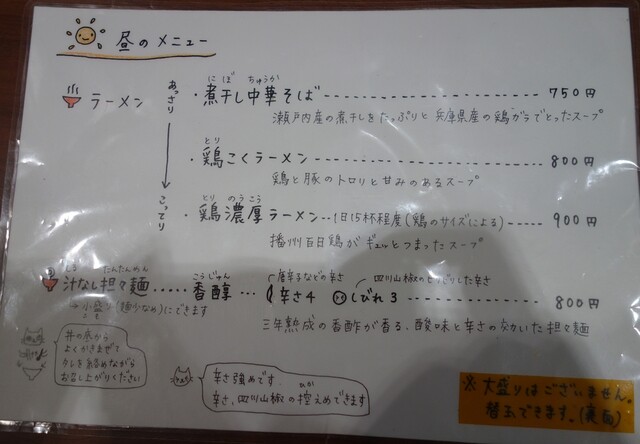 昼のメニュー
ラーメン
あっさり
こってり
にぼ ちゅうか
・煮干し中華そば 750円
瀬戸内産の煮干しをたっぷりと兵庫県産の鶏ガラでとったスープ
とり
・鶏こくラーメン 800円
鶏と豚のトロリと甘みのあるスープ
とり のうこう
・鶏濃厚ラーメン 1日15杯程度(鶏のサイズによる) 900円
播州百日鶏がギュッとつまったスープ
しる たんたんめん こうじゅん 唐辛子などの辛さ 四川山椒のしびれた辛さ
汁なし担々麺.....香醇... 辛さ4 しびれ3 800円
→小盛り(麺少なめ)にできます
三年熟成の香酢が香る、酸味と辛さの効いた担々麺
丼の底から
よくかきまぜて
タレを絡めながら
お召し上がりください
辛さ強めです
辛さ、四川山椒の控えめできます
※大盛りはございません。
替玉できます。(裏面)